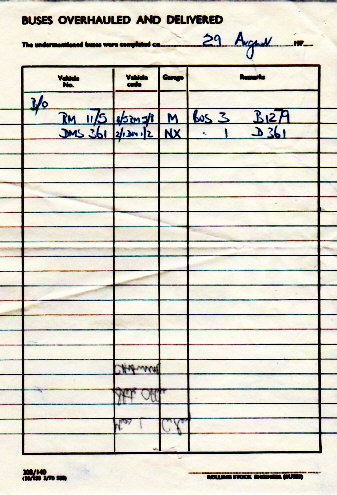 BUSES OVERHAULED AND DELIVERED
The undermentioned buses were completed on 29 August 197
Vehicle No. Vehicle code Garage Remarks
B/O
RM 1175 M BOS 3 B1279
DMS 361 NX " 1 D361
ROLLING STOCK ENGINEER (BUSES)